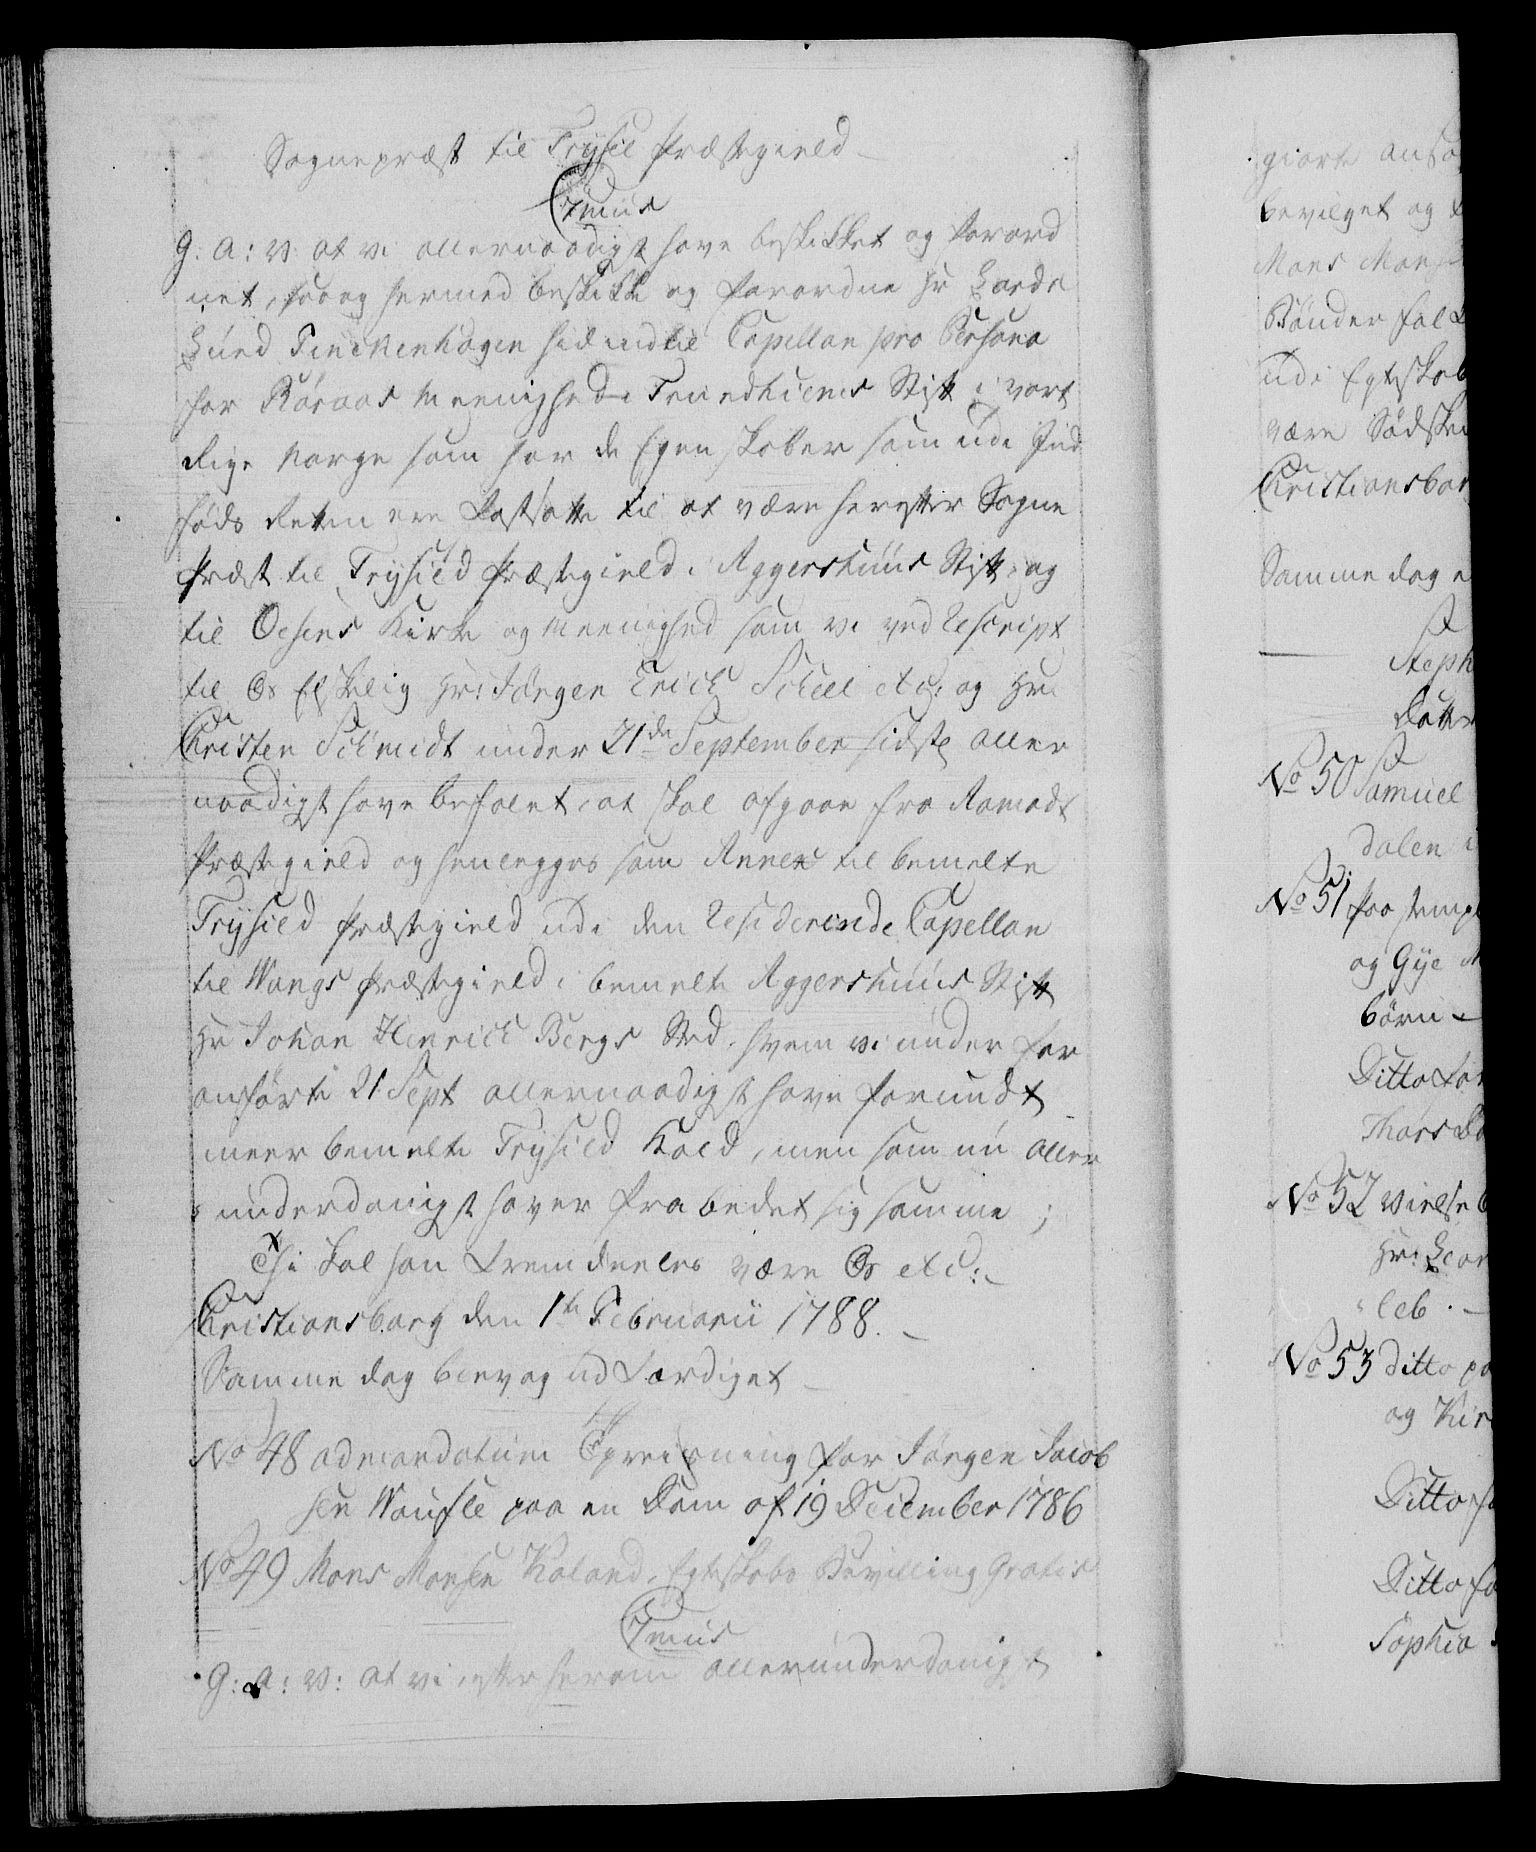 Sognepræst til Trysil Præstegield
C7mus
G: A: V: at vi allernaadigst have beskikket og forord
net, saa og hermed beskikke og forordne Hr
Lund Finckenhagen hidindtil Capellan pro Persona
for Røraas Meenighed i Trundhiems Stift i vort
Rige Norge som har de Egenskaber som udi Ind
føds Retten ere fastsatte til at være herefter Sogne
Præst til Trysild Præstegield i Aggershuus Stift, og
til Oesens Kirke og Meenighed som vi ved Rescript
til Os Elskelig Hr: Jørgen Erich Scheel etc: og Hr:
Christen Schmidt under 21de September sidste aller
naadigst have befalet, at skal afgaae fra Aamodt
Præstegield og henlegges som Annex til bemelte
Trysild Præstegield udi den Residerende Capellan
til Wangs Præstegield i bemelte Aggershuus Stift
Hr Johan Henrich Bergs Sted, hvem vi under for
anførte 21 Sept allernaadigst have forundt
meer bemelte Trysild Kald, men som nu aller
underdanigst haver frabedet sig samme;
Thi skal han fremdeeles være Os etc:
Christiansborg den 1te Februarii 1788.
Samme dag blev og udfærdiget
No 48 ad mandatum Opreisning for Jørgen Jacob
sen Waufle paa en Dom af 19 December 1786
No 49 Mons Monsen Kaland, Egteskabs Bevilling Gratis
C7mus
G: A: V: at vi, efter herom allerunderdanigst
giorte ansø
bevilget og
Mons Mons
Bønderfolk
udi Egteskab
være Sødsken
Christiansbor
Samme dag
Steph
Datter
No 50 Samuel
dalen i
No 51 paa stemp
og Gye
børn
Ditto for
Thors
No 52 Vielse b
Hr:
leb
No 53 ditto pa
og Kir
Ditto fo
Ditto fo
Sophia